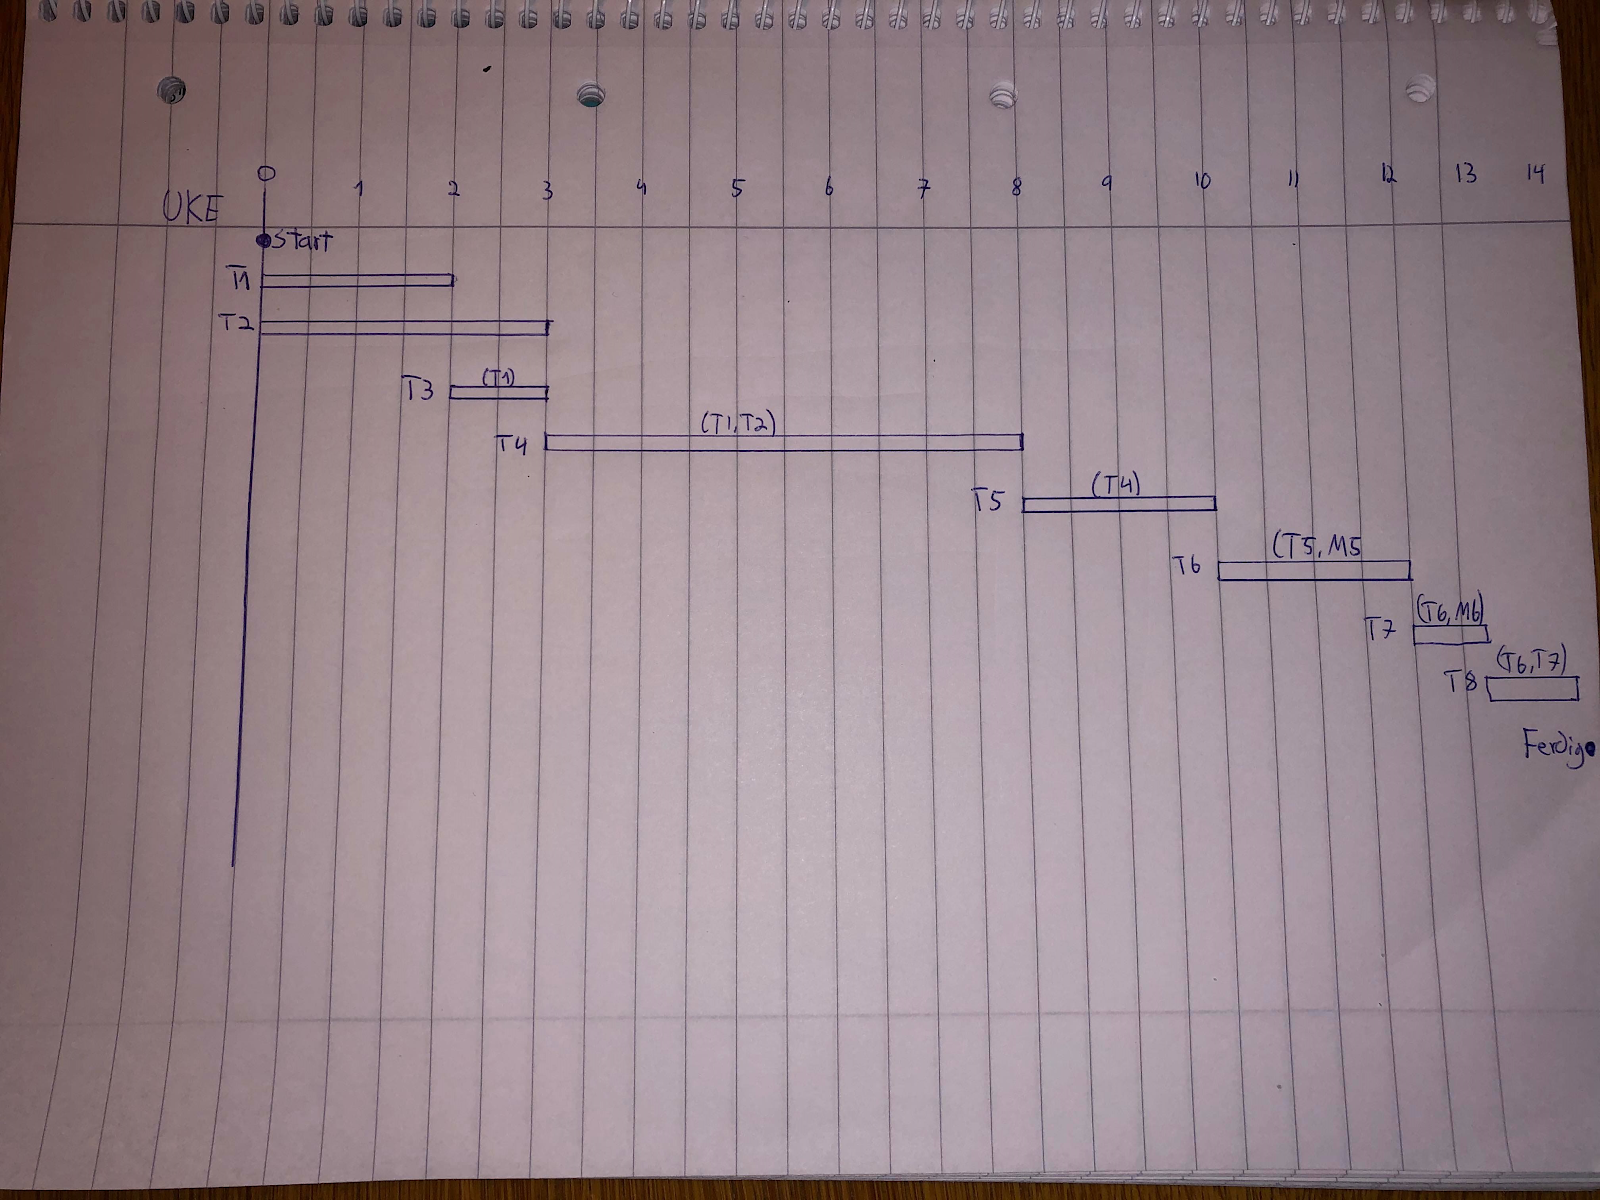 0 1 2 3 4 5 6 7 8 9 10 11 12 13 14
UKE
Start
T1
T2
T3 (T1)
T4 (T1, T2)
T5 (T4)
T6 (T5, M5
T7 (T6, M6)
T8 (T6, T7)
Ferdig